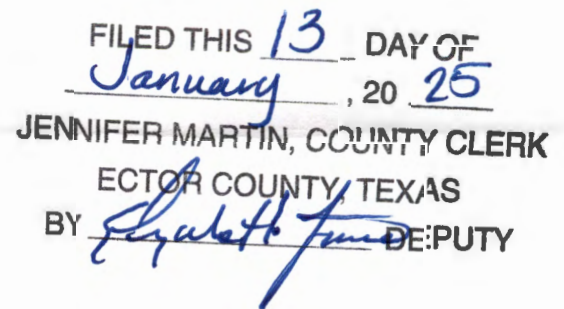 FILED THIS 13 DAY OF
January, 20 25
JENNIFER MARTIN, COUNTY CLERK
ECTOR COUNTY, TEXAS
BY Elizabeth DEPUTY